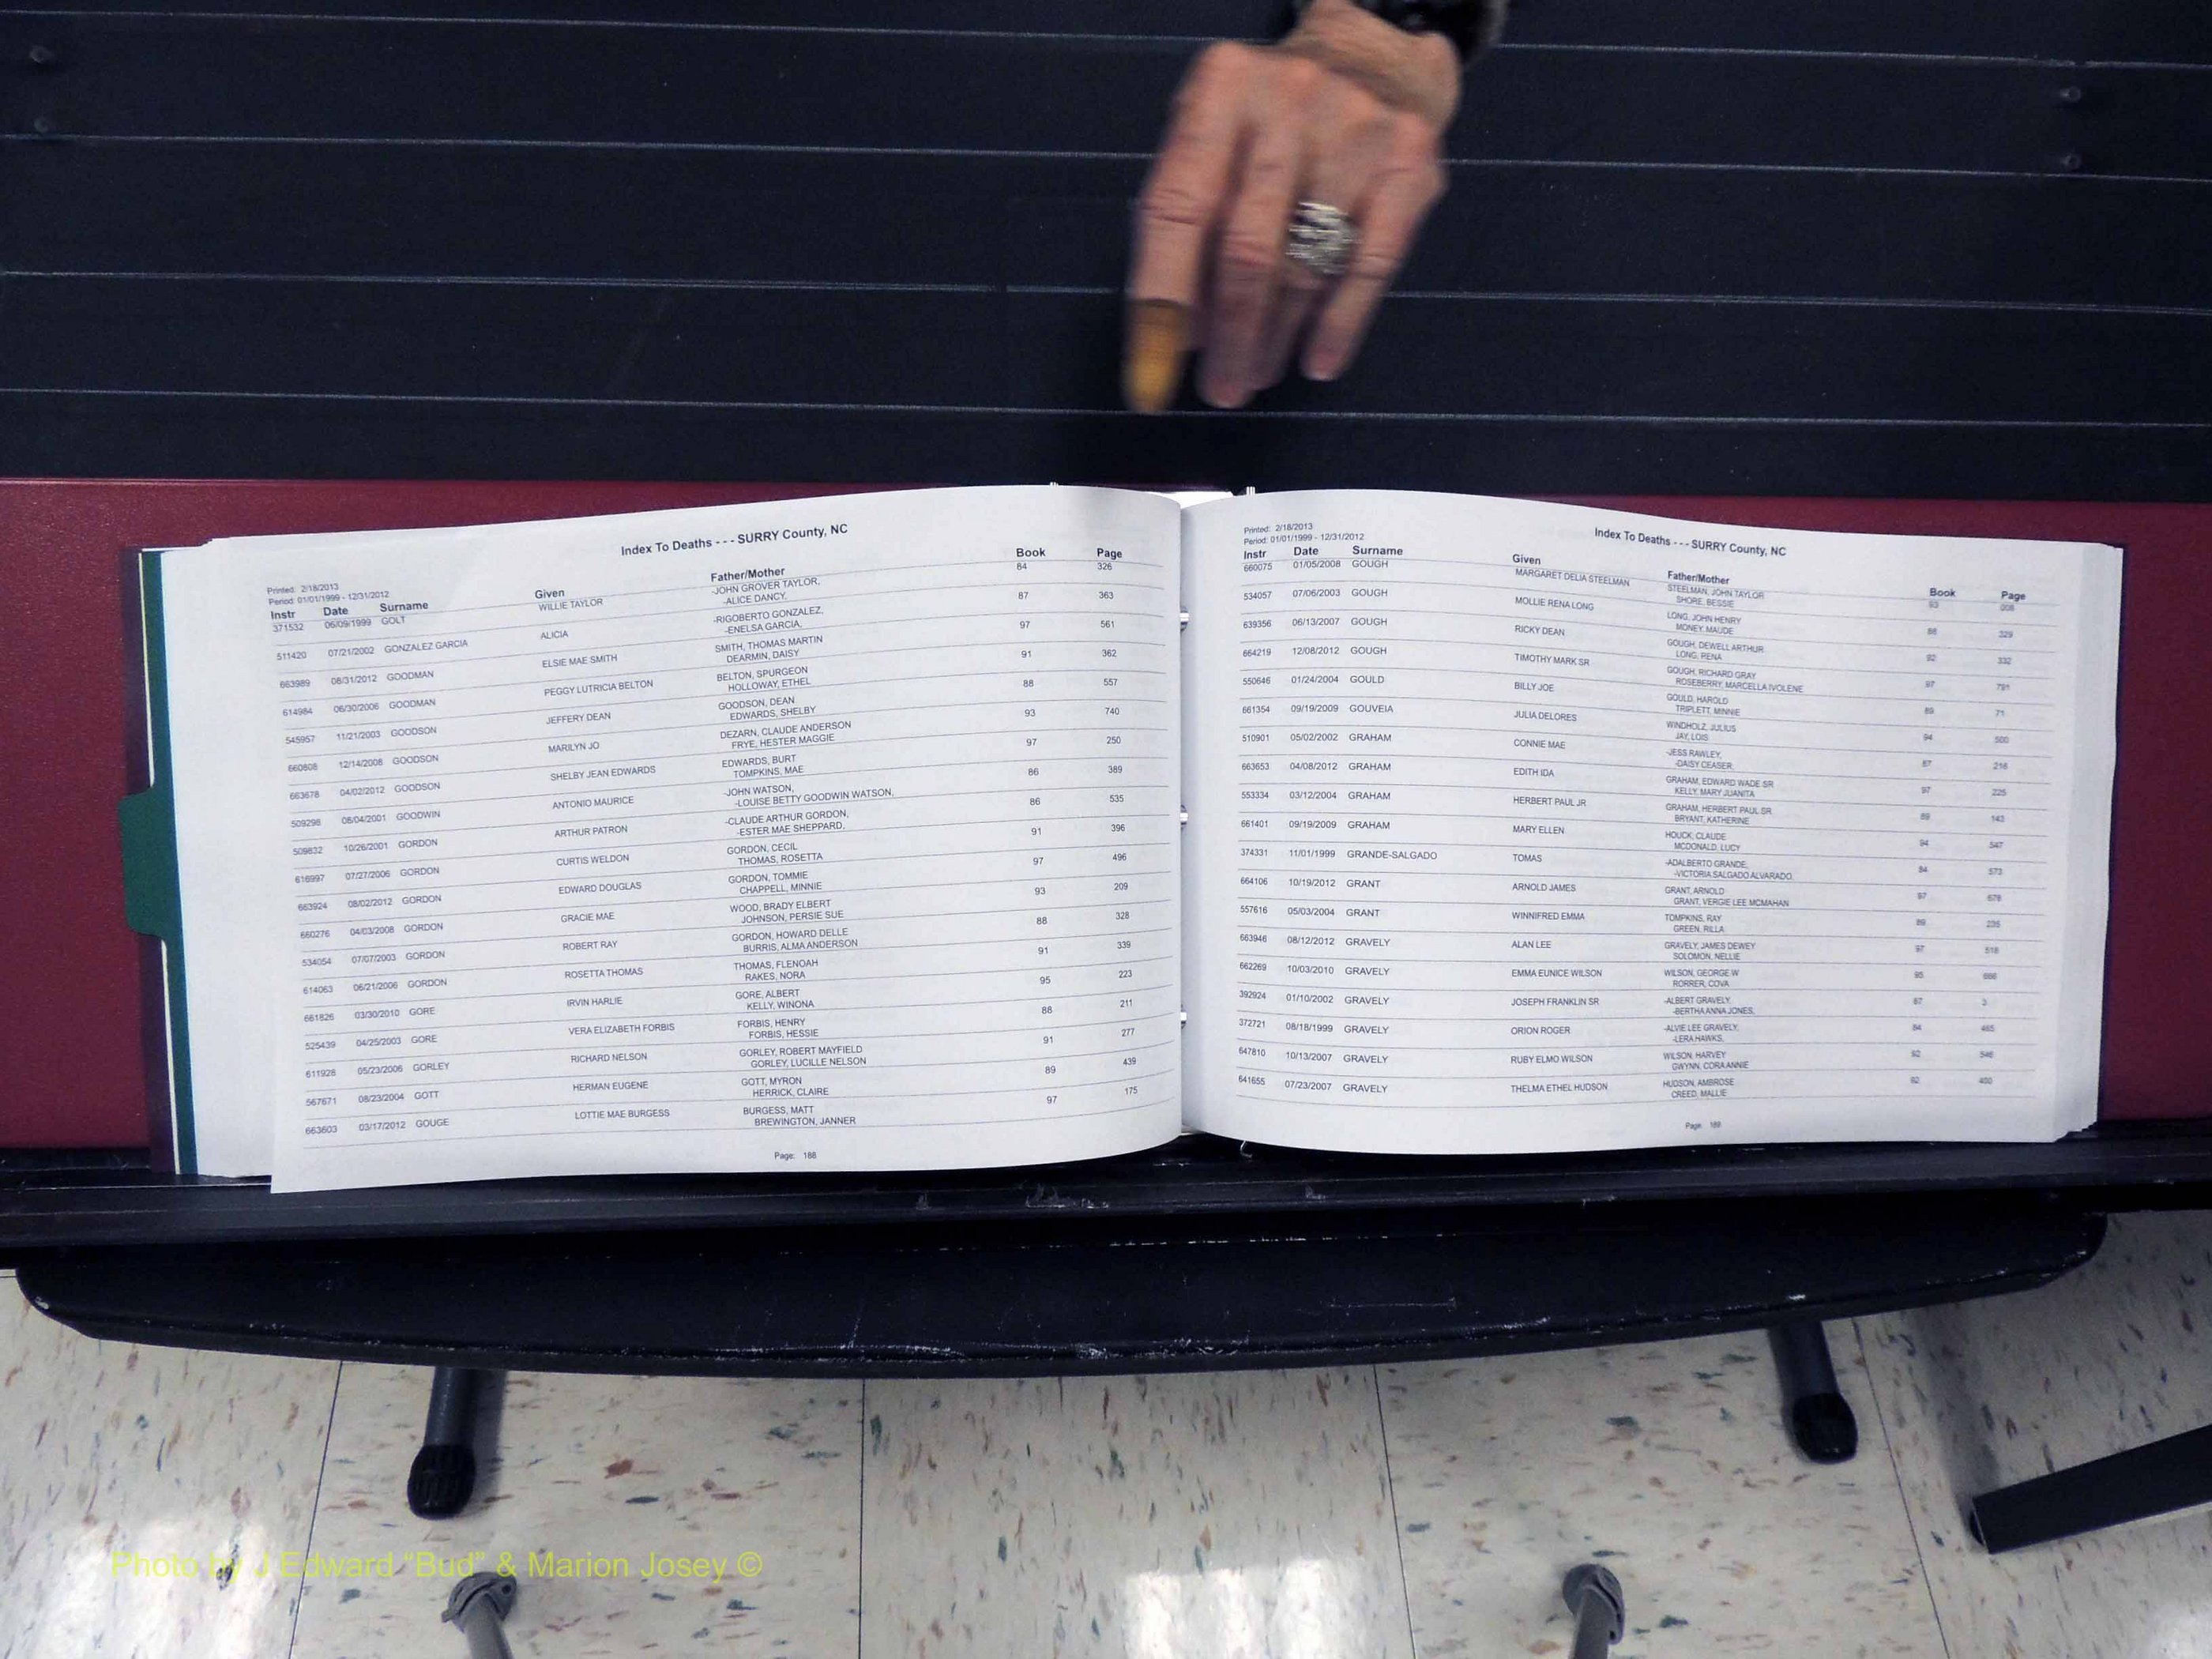 Index To Deaths - - - SURRY County, NC
Printed: 2/18/2013
Period: 01/01/1999 - 12/31/2012
Instr Date Surname Given Father/Mother Book Page
371532 06/09/1999 GOLT WILLIE TAYLOR -JOHN GROVER TAYLOR, 84 326
-ALICE DANCY,
511420 07/21/2002 GONZALEZ GARCIA ALICIA -RIGOBERTO GONZALEZ, 87 363
-ENELSA GARCIA,
663989 08/31/2012 GOODMAN ELSIE MAE SMITH SMITH, THOMAS MARTIN 97 561
DEARMIN, DAISY
614984 06/30/2006 GOODMAN PEGGY LUTRICIA BELTON BELTON, SPURGEON 91 362
HOLLOWAY, ETHEL
545957 11/21/2003 GOODSON JEFFERY DEAN GOODSON, DEAN 88 557
EDWARDS, SHELBY
660808 12/14/2008 GOODSON MARILYN JO DEZARN, CLAUDE ANDERSON 93 740
FRYE, HESTER MAGGIE
663678 04/02/2012 GOODSON SHELBY JEAN EDWARDS EDWARDS, BURT 97 250
TOMPKINS, MAE
509298 08/04/2001 GOODWIN ANTONIO MAURICE -JOHN WATSON, 86 389
-LOUISE BETTY GOODWIN WATSON,
509832 10/26/2001 GORDON ARTHUR PATRON -CLAUDE ARTHUR GORDON, 86 535
-ESTER MAE SHEPPARD,
616997 07/27/2006 GORDON CURTIS WELDON GORDON, CECIL 91 396
THOMAS, ROSETTA
663924 08/02/2012 GORDON EDWARD DOUGLAS GORDON, TOMMIE 97 496
CHAPPELL, MINNIE
660276 04/03/2008 GORDON GRACIE MAE WOOD, BRADY ELBERT 93 209
JOHNSON, PERSIE SUE
534054 07/07/2003 GORDON ROBERT RAY GORDON, HOWARD DELLE 88 328
BURRIS, ALMA ANDERSON
614063 06/21/2006 GORDON ROSETTA THOMAS THOMAS, FLENOAH 91 339
RAKES, NORA
661826 03/30/2010 GORE IRVIN HARLIE GORE, ALBERT 95 223
KELLY, WINONA
525439 04/25/2003 GORE VERA ELIZABETH FORBIS FORBIS, HENRY 88 211
FORBIS, HESSIE
611928 05/23/2006 GORLEY RICHARD NELSON GORLEY, ROBERT MAYFIELD 91 277
GORLEY, LUCILLE NELSON
567671 08/23/2004 GOTT HERMAN EUGENE GOTT, MYRON 89 439
HERRICK, CLAIRE
663603 03/17/2012 GOUGE LOTTIE MAE BURGESS BURGESS, MATT 97 175
BREWINGTON, JANNER
Page: 188
Printed: 2/18/2013
Period: 01/01/1999 - 12/31/2012
Index To Deaths - - - SURRY County, NC
Instr Date Surname Given Father/Mother Book Page
660075 01/05/2008 GOUGH MARGARET DELIA STEELMAN STEELMAN, JOHN TAYLOR 93
SHORE, BESSIE
534057 07/06/2003 GOUGH MOLLIE RENA LONG LONG, JOHN HENRY 88 329
MONEY, MAUDE
639356 06/13/2007 GOUGH RICKY DEAN GOUGH, DEWELL ARTHUR 92 332
LONG, RENA
664219 12/08/2012 GOUGH TIMOTHY MARK SR GOUGH, RICHARD GRAY 97 791
ROSEBERRY, MARCELLA IVOLENE
550646 01/24/2004 GOULD BILLY JOE GOULD, HAROLD 89 71
TRIPLETT, MINNIE
661354 09/19/2009 GOUVEIA JULIA DELORES WINDHOLZ, JULIUS 94 500
JAY, LOIS
510901 05/02/2002 GRAHAM CONNIE MAE -JESS RAWLEY, 87 216
-DAISY CEASER,
663653 04/08/2012 GRAHAM EDITH IDA GRAHAM, EDWARD WADE SR 97 225
KELLY, MARY JUANITA
553334 03/12/2004 GRAHAM HERBERT PAUL JR GRAHAM, HERBERT PAUL SR 89 143
BRYANT, KATHERINE
661401 09/19/2009 GRAHAM MARY ELLEN HOUCK, CLAUDE 94 547
MCDONALD, LUCY
374331 11/01/1999 GRANDE-SALGADO TOMAS -ADALBERTO GRANDE, 84 573
-VICTORIA SALGADO ALVARADO,
664106 10/19/2012 GRANT ARNOLD JAMES GRANT, ARNOLD 97 678
GRANT, VERGIE LEE MCMAHAN
557616 05/03/2004 GRANT WINNIFRED EMMA TOMPKINS, RAY 89 235
GREEN, RILLA
663946 08/12/2012 GRAVELY ALAN LEE GRAVELY, JAMES DEWEY 97 518
SOLOMON, NELLIE
662269 10/03/2010 GRAVELY EMMA EUNICE WILSON WILSON, GEORGE W 95 666
RORRER, COVA
392924 01/10/2002 GRAVELY JOSEPH FRANKLIN SR -ALBERT GRAVELY, 87 3
-BERTHA ANNA JONES,
372721 08/18/1999 GRAVELY ORION ROGER -ALVIE LEE GRAVELY, 84 465
-LERA HAWKS,
647810 10/13/2007 GRAVELY RUBY ELMO WILSON WILSON, HARVEY 92 546
GWYNN, CORA ANNIE
641655 07/23/2007 GRAVELY THELMA ETHEL HUDSON HUDSON, AMBROSE 92 400
CREED, MALLIE
Page: 189
Photo by J Edward "Bud" & Marion Josey ©